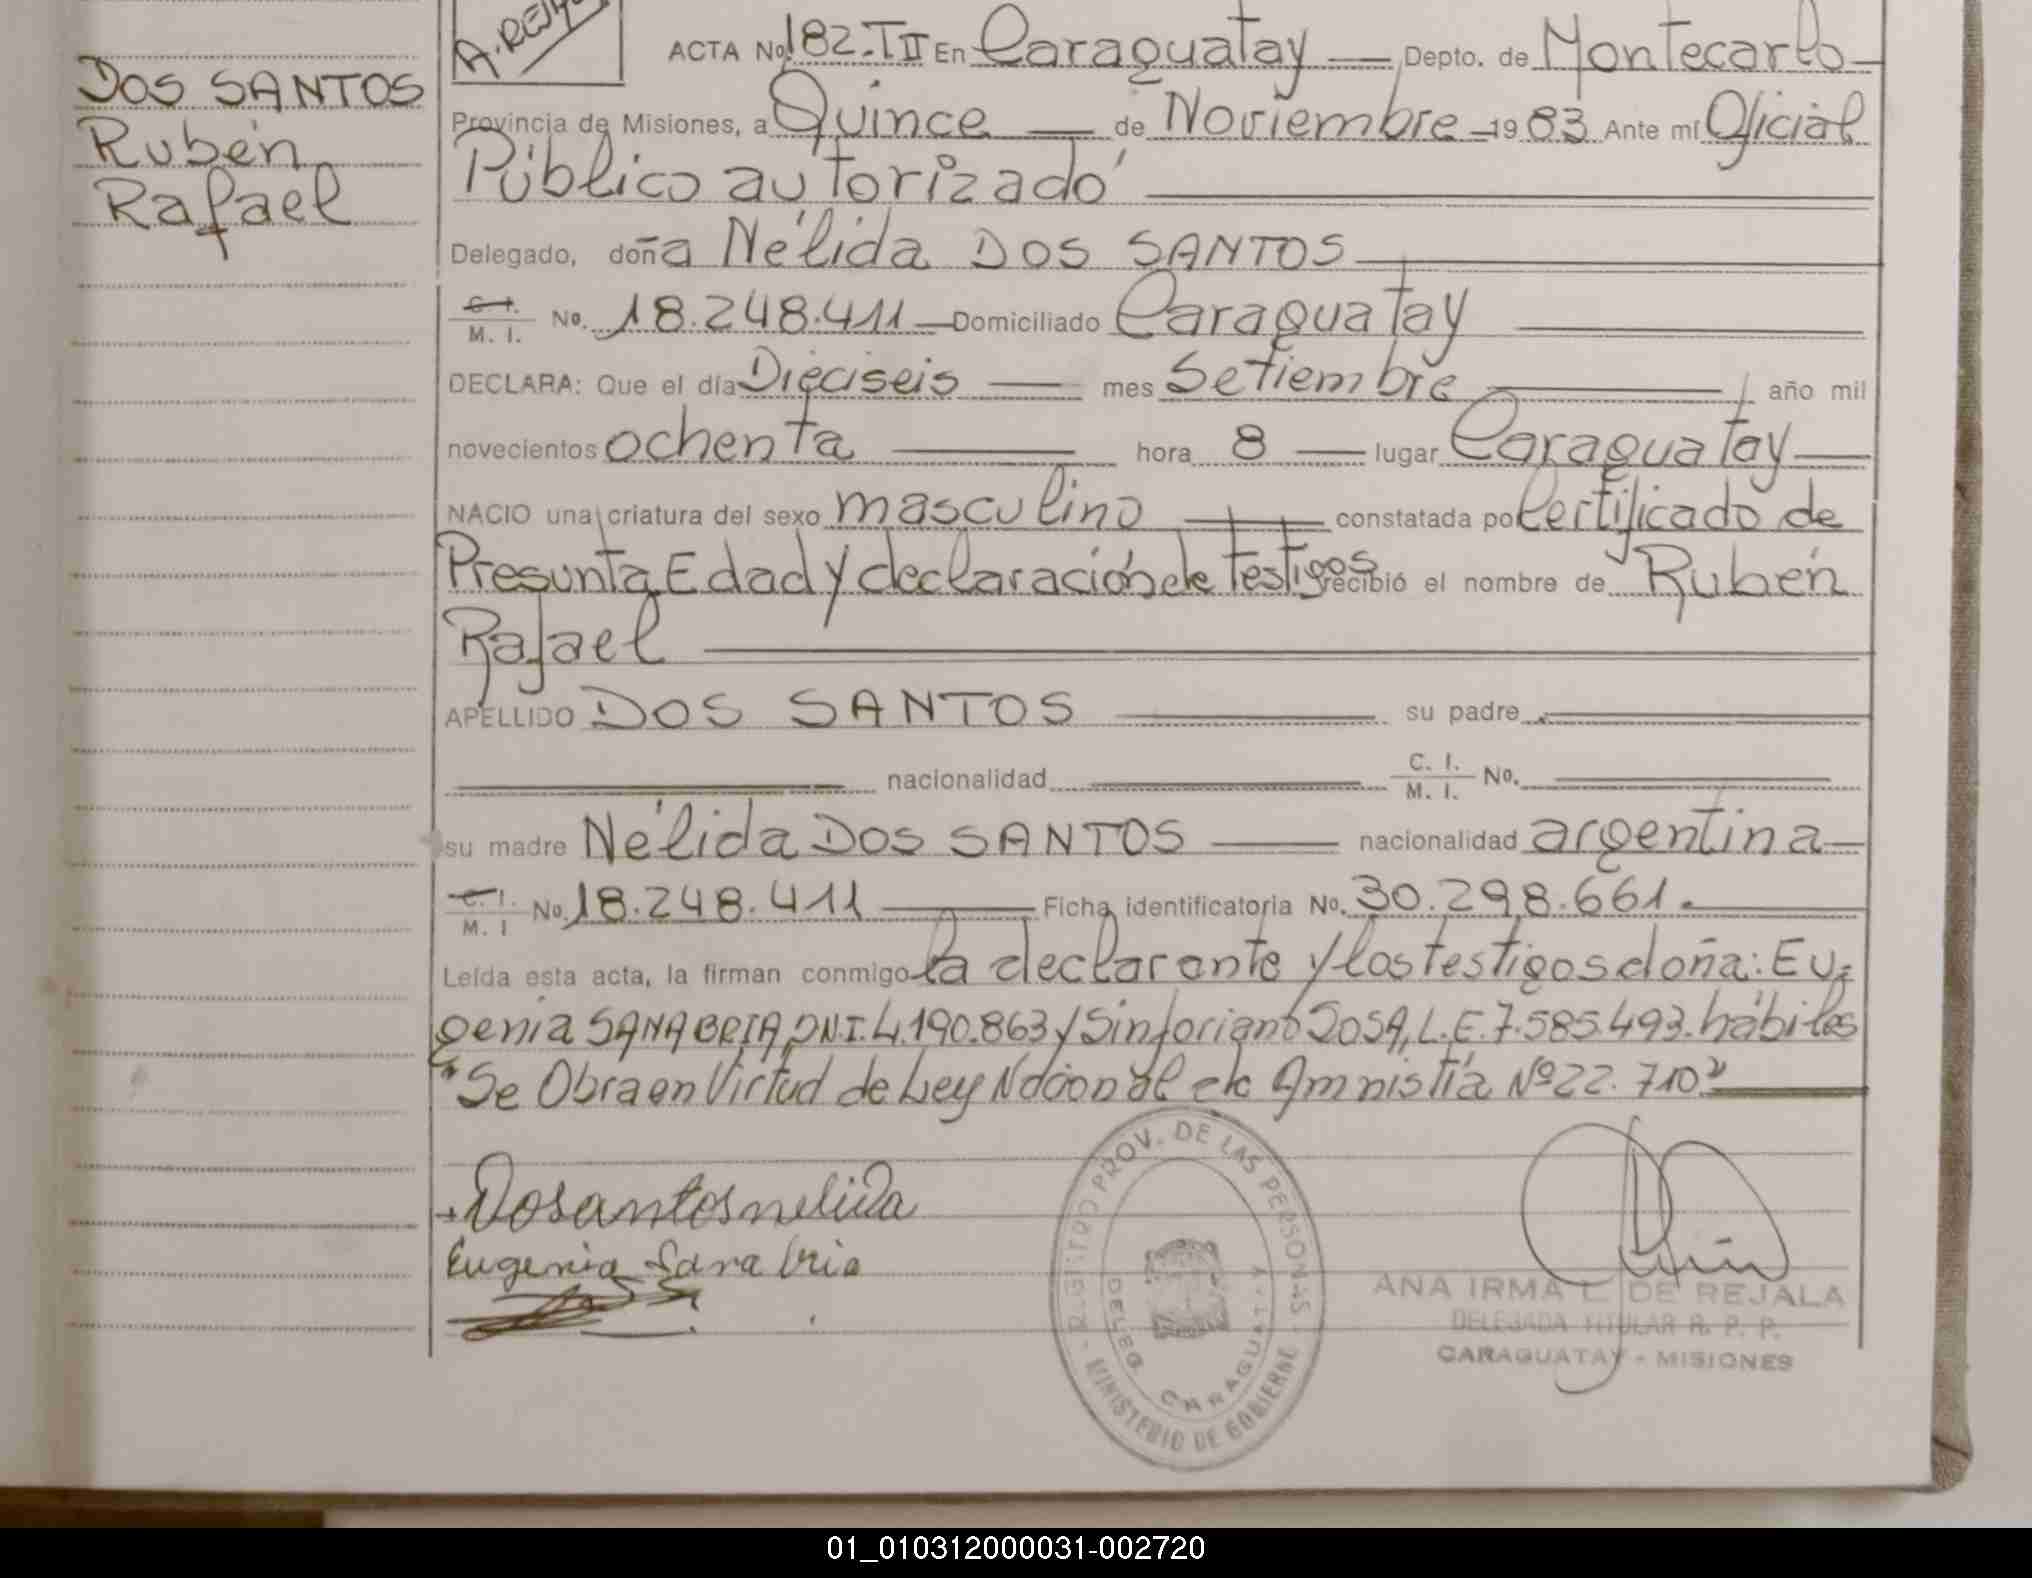 A. REJA
DOS SANTOS
Rubén
Rafael
ACTA No. 182.TII En Caraguatay Depto. de Montecarlo
Provincia de Misiones, a Quince de Noviembre 1983 Ante mí Oficial
Público autorizado
Delegado, doña Nélida DOS SANTOS
C. I.
M. I. No. 18.248.411 Domiciliado Caraguatay
DECLARA: Que el día Dieciseis mes Setiembre año mil
novecientos ochenta hora 8 lugar Caraguatay
NACIO una criatura del sexo masculino constatada por Certificado de
Presunta Edad y declaración de testigos recibió el nombre de Rubén
Rafael
APELLIDO DOS SANTOS su padre
nacionalidad C. I.
M. I. No.
su madre Nélida DOS SANTOS nacionalidad argentina
C. I.
M. I No. 18.248.411 Ficha identificatoria No. 30.298.661.
Leída esta acta, la firman conmigo la declarante y los testigos doña: Eu-
genia SANABRIA, DN.I. 4.190.863 y Sinforiano SOSA, L.E. 7.585.493. hábiles
"Se Obra en Virtud de Ley Nacional de Amnistía Nº 22.710"
Dosantosnelida
Eugenia Sanabria
REGISTRO PROV. DE LAS PERSONAS - MINISTERIO DE GOBIERNO
DELEG. CARAGUATAY
ANA IRMA L. DE REJALA
DELEGADA TITULAR R. P. P.
CARAGUATAY - MISIONES
01_010312000031-002720